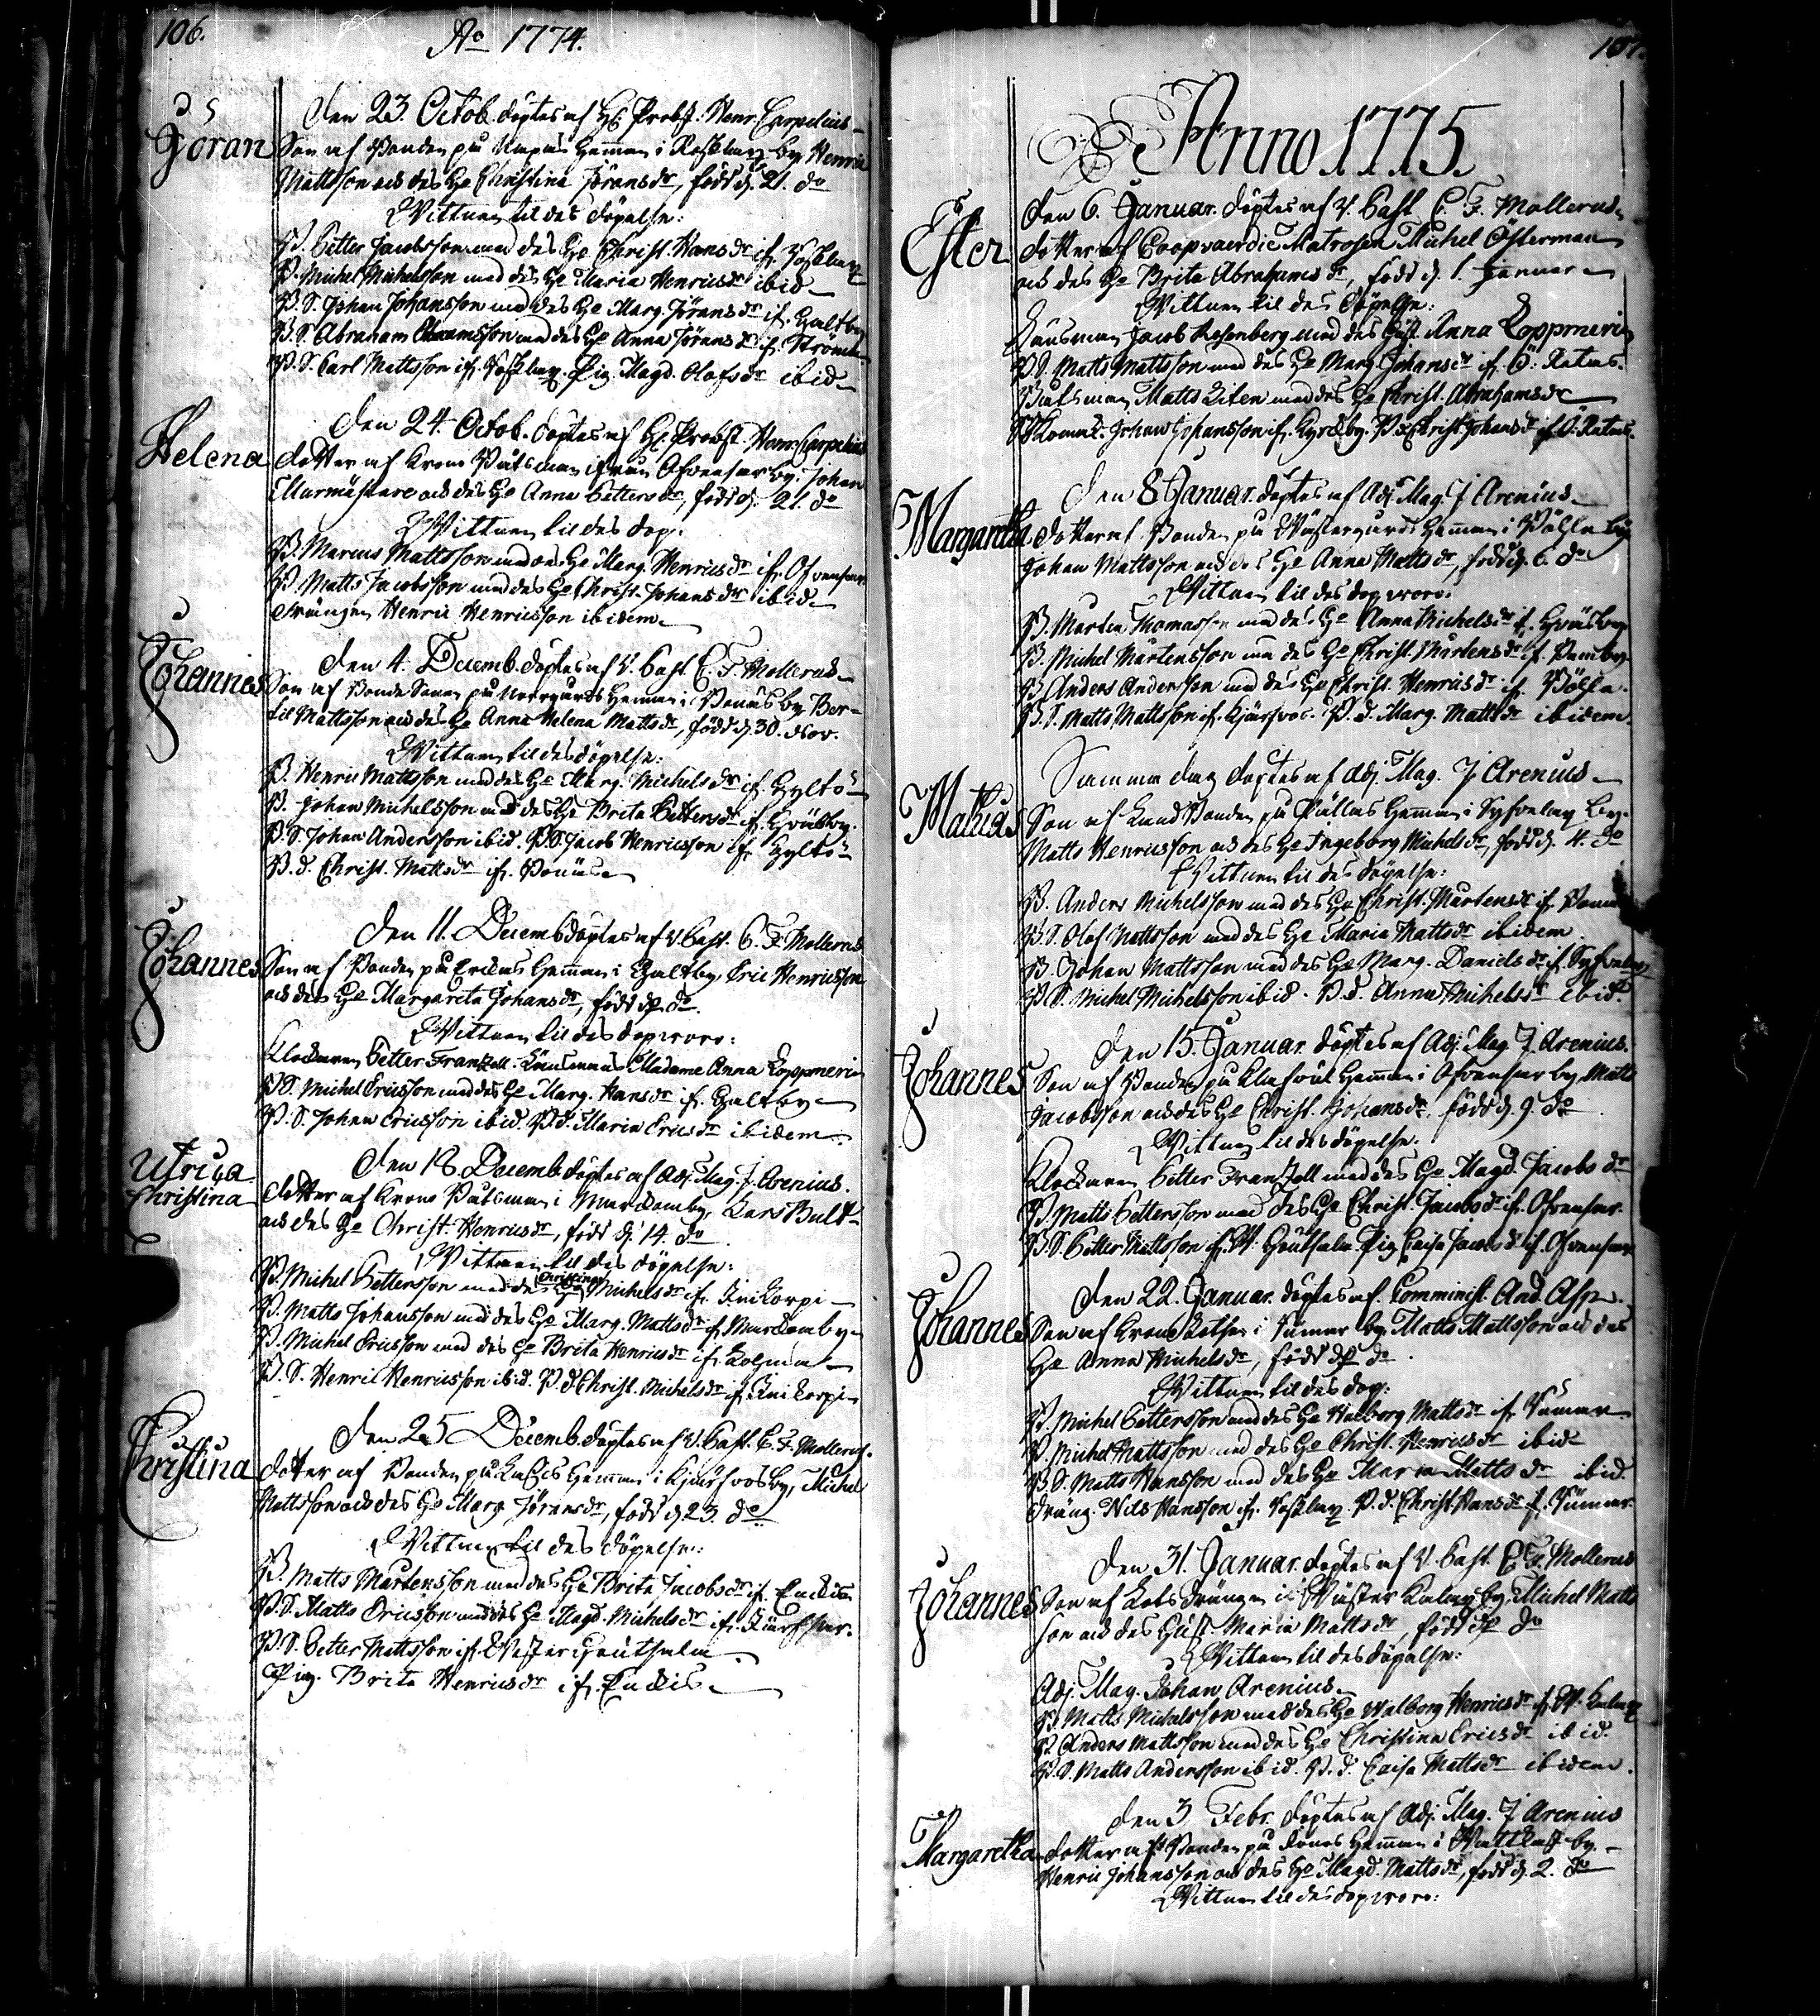 106.
Ao 1774.
Göran
Den 23. Octob. döptes af H. Probst. Henr. Carpelius
Son af Bonden på Hemman i by Henric
Mattsson och des H. Christina Jöransdr, född d. 21. do
Wittnen til des döpelse:
B. Petter Jacobsson med des H. Christ. Hansdr if.
B. Michel Michelsson med des H. Maria Henricsdr ibid
B. S. Johan Johansson med des H. Marg. Jöransdr if. Galtby
B. S. Abraham Abramsson med des H. Anna Jöransdr if. Strömma
B. S. Carl Mattsson if. Pig. Magd. Olofsdr ibid
Helena
Den 24. Octob. döptes af H. Probst. Henr. Carpelius
dotter af Krono Båtsman ifrån Ofvensar by. Johan
Murmästare och des H. Anna Pettersdr, född d. 21. do
Wittnen til des dop.
B. Marcus Mattsson med des H. Marg. Henricsdr if. Ofvensar
B. Matts Jacobsson med des H. Christ. Johansdr ibid
Drängen Henric Henricsson ibidem
Johannes
Den 4. Decemb. döptes af V. Past. C. F. Mollerus
Son af Bonde Sonen på Norrgårds Hemman i by Ber-
til Mattsson och des H. Anna Helena Mattsdr, född d. 30. Nov.
Wittnen til des döpelse:
B. Henric Mattsson med des H. Marg. Michelsdr if. Hyltö
B. Johan Michelsson med des H. Brita Pettersdr if.
B. S. Johan Andersson ibid. B. S. Jacob Henricsson if. Hyltö
B. d. Christ. Mattsdr if.
Johannes
Den 11. Decemb döptes af V. Past. C. F. Mollerus
Son af Bonden på Erickas Hemman i Galtby, Eric Henricsson
och des H. Margareta Johansdr, född d. do
Wittnen til des dop woro:
Klockaren Petter Frantzell. Madame Anna Koppmeri
B. S. Michel Ericsson med des H. Marg. Hansdr if. Galtby
B. S. Johan Ericsson ibid. B. d. Maria Ericsdr ibidem
Ulrica
Christina
Den 18. Decemb. döptes af Adj. Mag. J. Arenius.
dotter af Krono Båtsman i Murckomby, Lars Bult
och des H. Christ. Henricsdr, född d. 14. do
Wittnen til des döpelse:
B. Michel Pettersson med des H. Christina Michelsdr if. Knikorpi
B. Matts Johansson med des H. Marg. Mattsdr if. Murckomby
B. Michel Ericsson med des H. Brita Henricsdr if.
B. S. Henric Henricsson ibid. B. d. Christ. Michelsdr if. Knikorpi
Christina
Den 25 Decemb. döptes af V. Past. C. F. Mollerus.
dotter af Bonden på Hemman i by, Michel
Mattsson och des H. Marg. Jöransdr, född d. 23. do
Wittnen til des döpelse:
B. Matts Martensson med des H. Brita Jacobsdr if. Enckis
B. S. Matts Ericsson med des H. Magd. Michelsdr if.
B. S. Petter Mattsson if. Wester
Pig. Brita Henricsdr if. Enckis
107.
Anno 1775.
Ester
Den 6. Januar. döptes af V. Past. C. F. Mollerus
dotter af Coopvaerdie Matrosen Michel Österman
och des H. Brita Abrahamsdr, född d. 1. Januar
Wittnen til des döpelse:
Länsman Jacob Rosenberg med des Hust. Anna Koppmeri
B. S. Matts Mattsson med des H. Marg. Johansdr if. Ö. Retais.
Båtsman Matts Liten med des H. Christ. Abrahamsdr
Johan Johansson if. Kyrckby. B. d. Christ. Johansdr if. Ö. Retais.
Margaretha
Den 8 Januar. döptes af Adj. Mag. J. Arenius
dotter af Bonden på Wästergårds Hemman i Bölsla by
Johan Mattsson och des H. Anna Mattsdr, född d. 6. do
Wittnen til des dop woro.
B. Marten Thomasson med des H. Anna Michelsdr if.
B. Michel Martensson med des H. Christ. Martensdr if.
B. Anders Andersson med des H. Christ. Henricsdr if. Bölsla.
B. S. Matts Mattsson if. B. d. Marg. Mattsdr ibidem.
Mathias
Samma dag döptes af Adj. Mag. J. Arenius
Son af Land Bonden på Pällas Hemman i by.
Matts Henricsson och des H. Ingeborg Michelsdr, född d. 4. do
Wittnen til des döpelse:
B. Anders Michelsson med des H. Christ. Martensdr if.
B. S. Olof Mattsson med des H. Maria Mattsdr ibidem.
B. Johan Mattsson med des H. Marg. Danielsdr if.
B. S. Michel Michelsson ibid. B. d. Anna Michelsdr ibid.
Johannes
Den 15. Januar. döptes af Adj. Mag. J. Arenius.
Son af Bonden på Hemman i Ofvensar by Matts
Jacobsson och des H. Christ. Johansdr, född d. 9. do
Wittnen til des döpelse.
Klockaren Petter Frantzell med des H. Magd. Jacobsdr
B. Matts Pettersson med des H. Christ. Jacobsdr if. Ofvensar.
B. S. Petter Mattsson if. W. Pig. Caisa Jacobsdr if. Ofvensar
Johannes
Den 22. Januar. döptes af Comminist. And. Asp.
Son af Krono i by. Matts Mattsson och des
H. Anna Michelsdr, född d. do.
Wittnen til des dop:
B. Michel Pettersson med des H. Walborg Mattsdr if.
B. Michel Mattsson med des H. Christ. Henricsdr ibid
B. S. Matts Hansson med des H. Maria Mattsdr ibid.
Dräng. Nils Hansson if. B. d. Christ. Hansdr if.
Johannes
Den 31. Januar. döptes af V. Past. C. F. Mollerus
Son af Drängen i Wäster by, Michel Matts
son och des Hust. Maria Mattsdr, född d. do
Wittnen til des döpelse:
Adj. Mag. Johan Arenius
B. Matts Michelsson med des H. Walborg Henricsdr if. W.
B. Anders Mattsson med des H. Christina Ericsdr ibid.
B. S. Matts Andersson ibid. B. d. Caisa Mattsdr ibidem.
Margaretha
Den 3 Febr. döptes af Adj. Mag. J. Arenius
dotter af Bonden på Hemman i by
Henric Johansson och des H. Magd. Mattsdr, född d. 2. do
Wittnen til des dop woro: